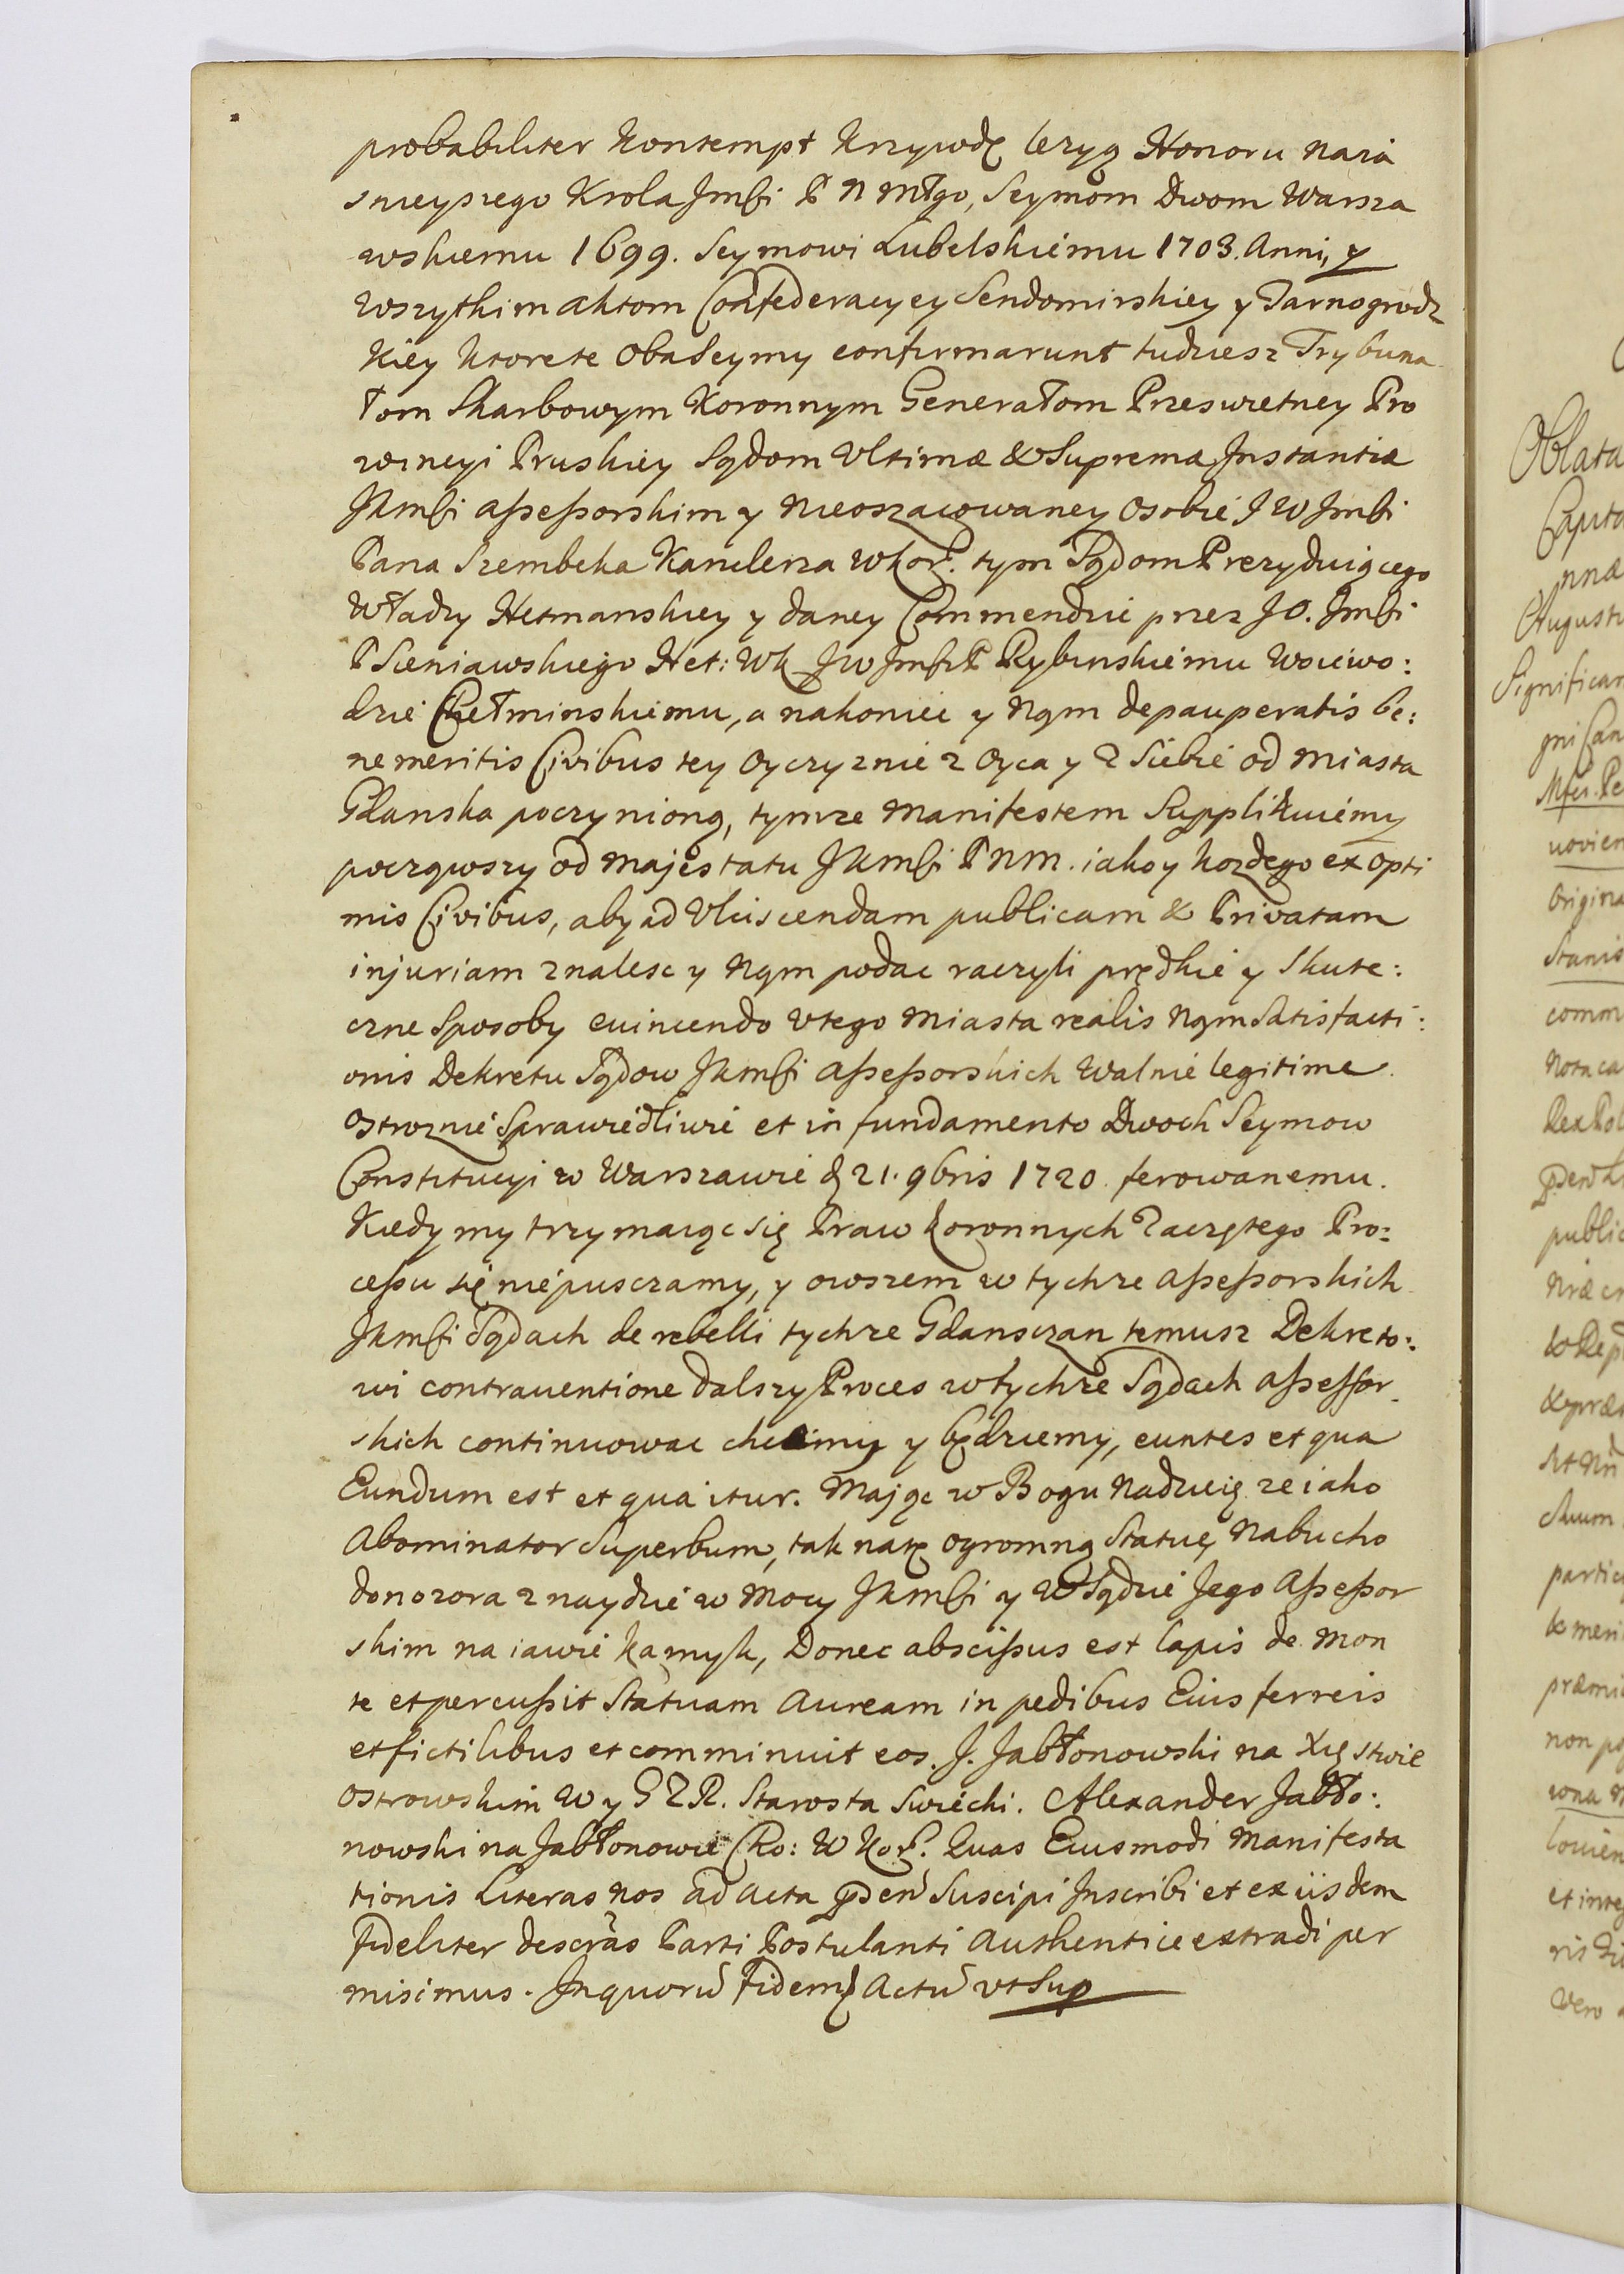 probabiliter Kontempt Krzywdę lezyą Honoru Naia
snieyszego Krola Jmści P N Młgo, Seymom Dwom Warsza
wskiemu 1699. Seymowi Lubelskiemu 1703. Anni, y
wszytkim aktom Confederacyey Sendomirskiey y Tarnogrodz
kiey ktorete oba Seymy confirmarunt tudziesz Trybuna
łom Skarbowym Koronnym Generałom Przeswietney Pro
wincyi Pruskiey Sądom Vltimæ & Supremæ Instantiæ
JKmści assessorskim y nieoszacowaney Osobie J W Jmści
Pana Szembeka Kanclerza w Kor. tym Sądom Prezyduiącego
Władzy Hetmanskiey y daney Commendzie przez J O. Jmści
P Sieniawskiego Het: Wk JW Jmści P Rybinskiemu Woiewo:
dzie Chełminskiemu, a nakoniec y Nąm depauperatis be:
nemeritis Civibus tey Oyczyznie z Oyca y z Siebie od Miasta
Gdanska poczynioną, tymze Manifestem Supplikuiemy
począwszy od Majestatu JKmści P N M. iako y kozdego ex opti
mis Civibus, aby ad Vlciscendam publicam & Privatam
injuriam znalesc y Nąm podac raczyli prędkie y Skute:
czne Sposoby evincendo v tego Miasta realis Nąm Satisfacti:
onis Dekretu Sądow JKmści assessorskich Walnie legitime
Ostroznie Sprawiedliwie et in fundamento Dwoch Seymow
Constitucyi w Warszawie d 21. 9bris 1720 ferowanemu.
Kiedy my trzymaiąc się Praw Koronnych Zaczętego Pro:
cessu się niepuszczamy, y owszem w tychze assessorskich
JKmści Sądach de rebelli tychze Gdansczan temusz Dekreto:
wi contraventione dalszy Proces w tychze Sądach assessor
skich continuowac chcemy y będziemy, euntes et qua
Eundum est et qua itur. Mając w Bogu Nadzieię ze iako
Abominator Superbum, tak na tę ogromną Statuę Nabucho
donozora znaydzie w Mocy JKmści y w Sądzie Jego Assessor
skim na iawie kamyk, Donec abscissus est lapis de mon
te et percussit Statuam Auream in pedibus Eius ferreis
et fictilibus et comminuit eos. J. Jabłonowski na Xięstwie
Ostrowskim W y G Z R. Starosta Swiecki. Alexander Jabło:
nowski na Jabłonowie Cho: W Kor. Quas Eiusmodi Manifesta
tionis Literas nos ad Acta Suscipi Inscribi et ex iisdem
fideliter descrãs Parti Postulanti Authentice extradi per
misimus. In quorũ fidem Actũ vt Sup